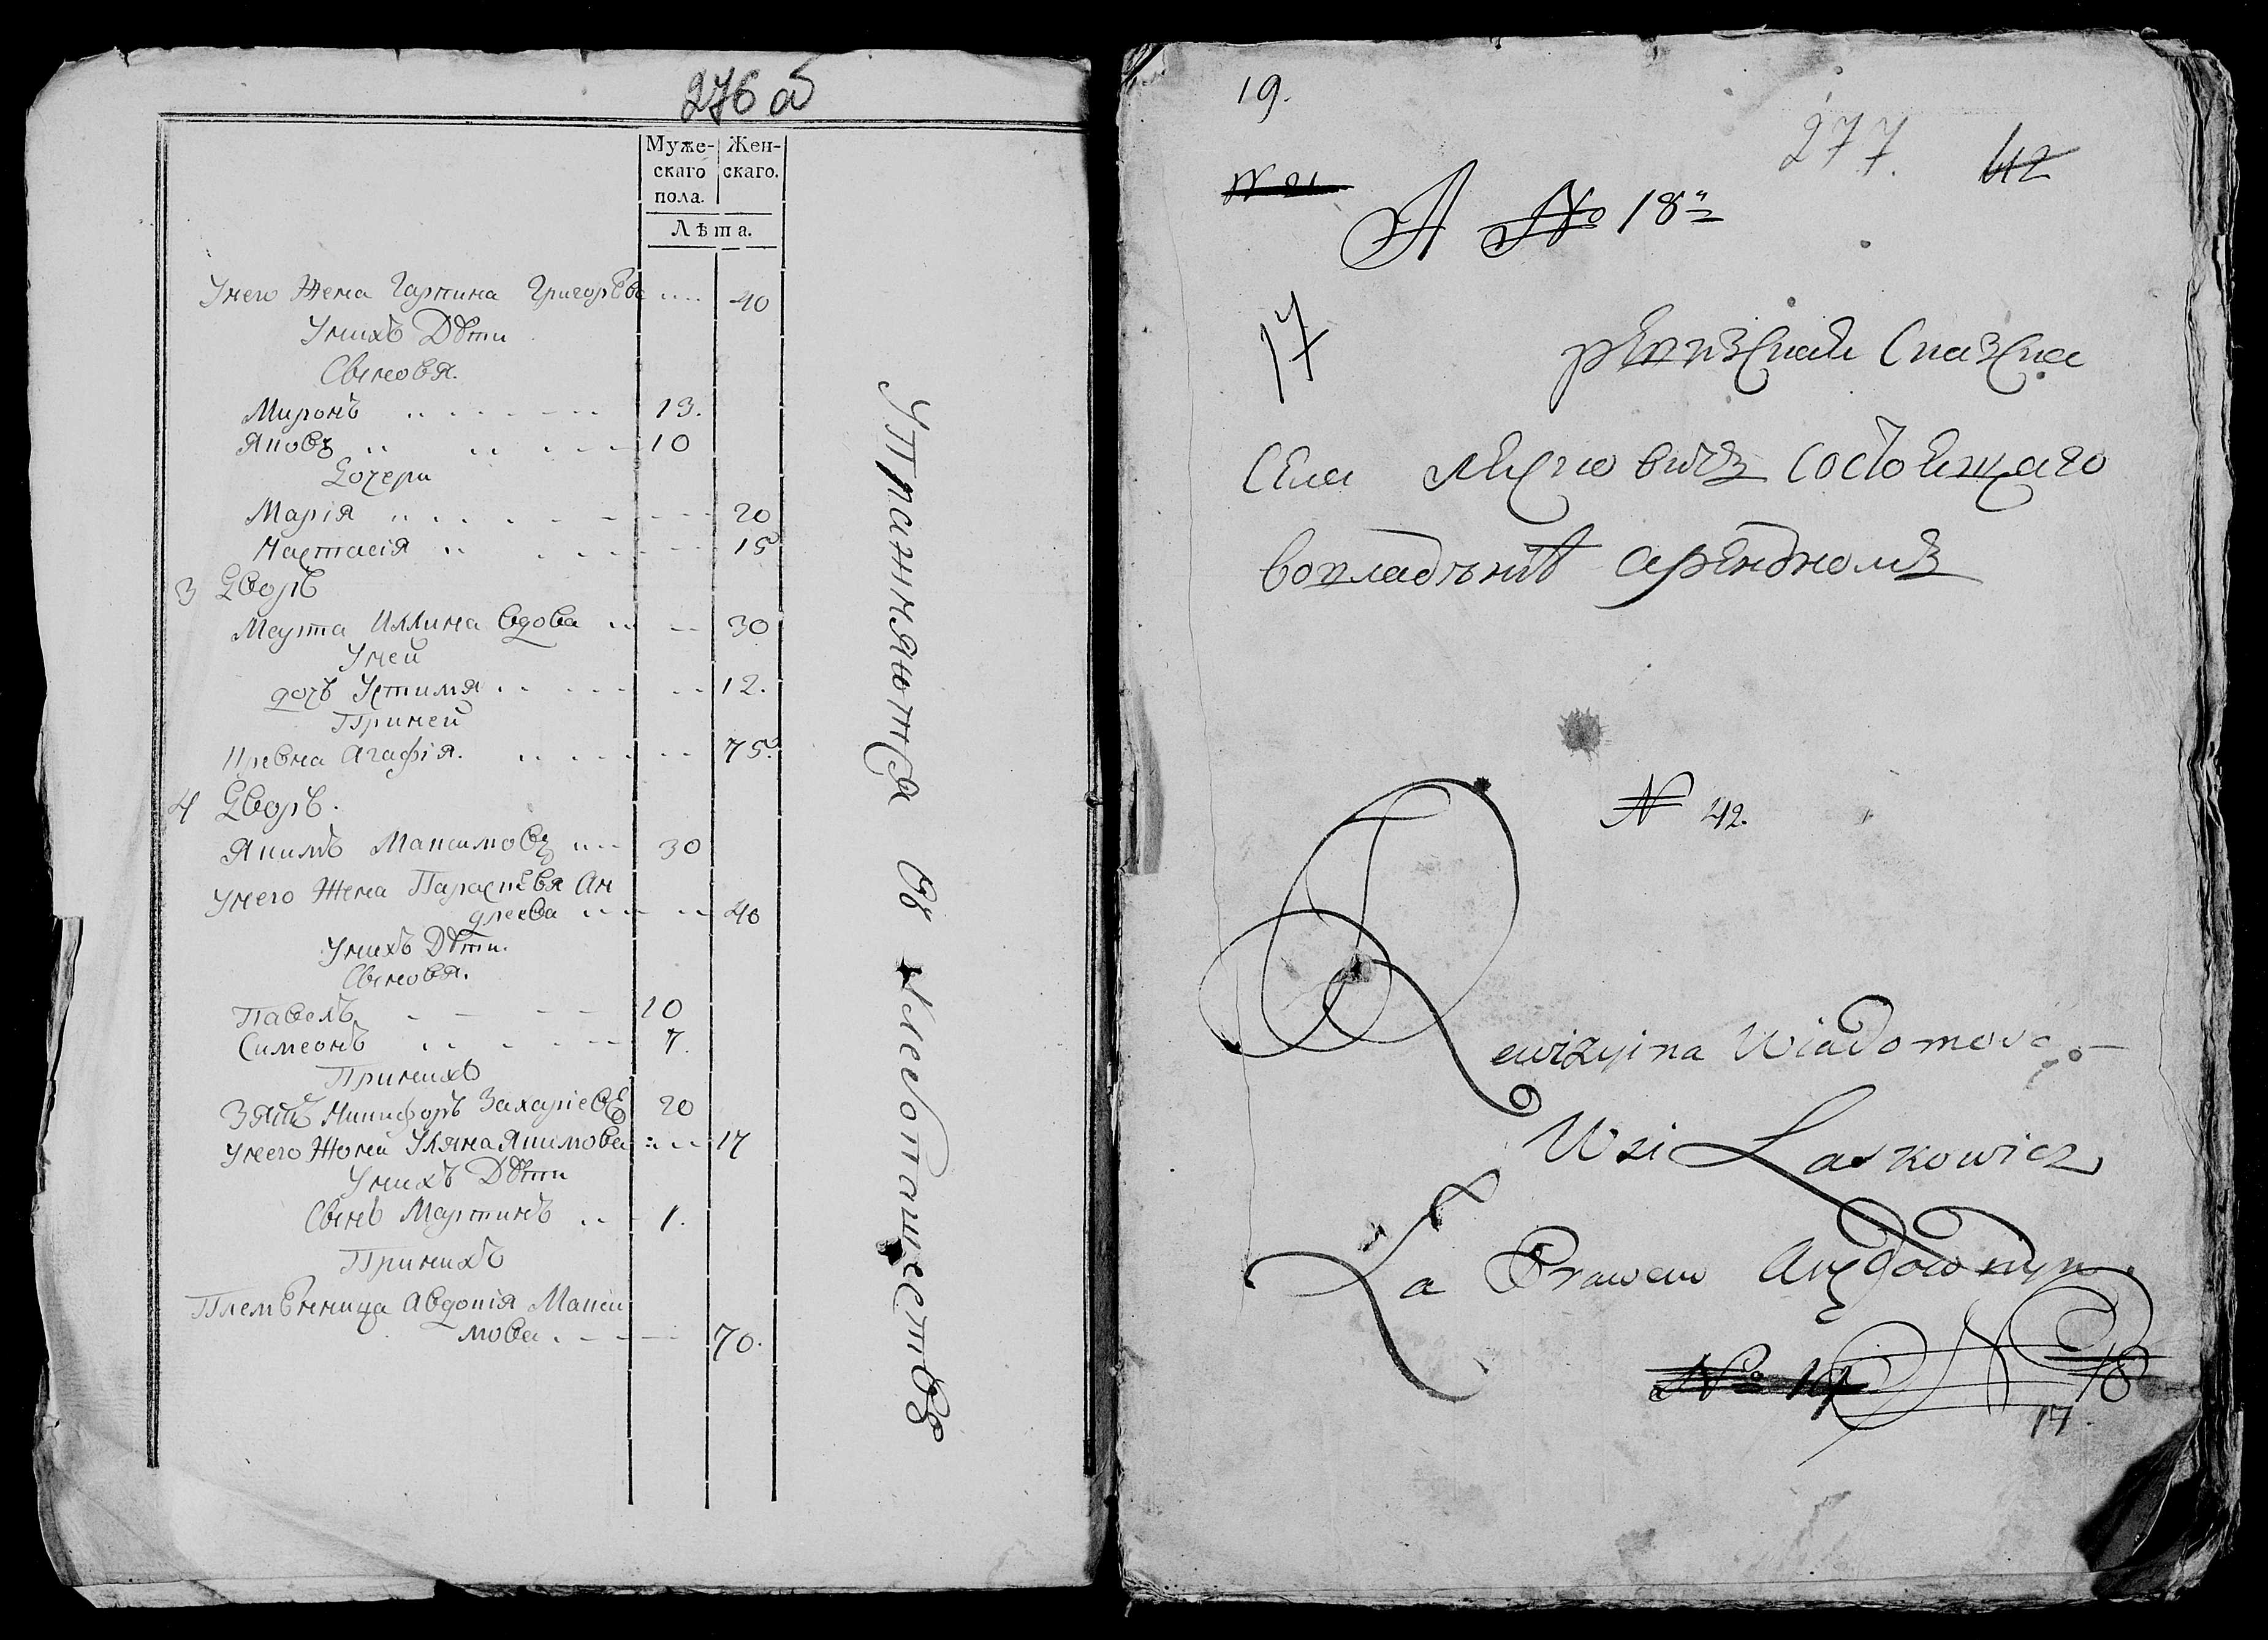 276 об
Муже-
скаго
пола.
Жен-
скаго.
Лѣта.
Унего Жена Гарпина Григорѣва 40
Унихъ Дѣти
Сыновя.
Миронъ 13.
Яковъ 10
Дочери
Марія 20
Настасія 15
3 Дворъ
Марта Иллина вдова 30
Уней
дочь Устимя 12.
Приней
Агафія. 75.
4 Дворъ.
Якимъ Максимовъ 30
Унего Жена Параскѣвя Ан
дреева 40
Унихъ Дѣти.
Сыновя.
Павелъ 10
Симеонъ 7.
Принихъ
Зять Никифоръ Захаріевъ 20
Унего Жена Уляна Якимова 17
Унихъ Дѣти
Сынъ Мартинъ 1.
Принихъ
Племѣнница Авдотія Макси
мова. 70.
Упражняются въ хлебопашествѣ
19.
277. 42
А № 18
17
ревизская Сказка
Села Лясковичъ состоящаго
вовладѣніи арендномъ
N 42.
Rewizyina Wiadomość
Wsi Laskowicz
Za Prawem Arędownym.
N 18
17.